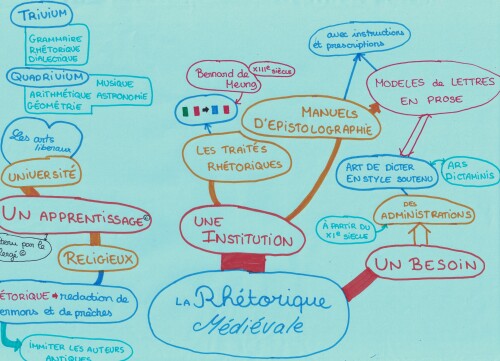 TRIVIUM
GRAMMAIRE
RHÉTORIQUE
DIALECTIQUE
QUADRIVIUM
MUSIQUE
ARITHMÉTIQUE ASTRONOMIE
GÉOMÉTRIE
Les arts
libéraux
UNIVERSITÉ
UN APPRENTISSAGE ©
tenu par le
clergé ©
RELIGIEUX
RHÉTORIQUE → rédaction de
sermons et de prêches
IMMITER LES AUTEURS
ANTIQUES
LA Rhétorique
Médiévale
UNE
INSTITUTION
LES TRAITÉS
RHÉTORIQUES
Bernard de
Meung
XIIIe siècle
MANUELS
D'ÉPISTOLOGRAPHIE
avec instructions
et prescriptions
MODÈLES de LETTRES
EN PROSE
ART DE DICTER
EN STYLE SOUTENU
ARS
DICTAMINIS
DES
ADMINISTRATIONS
À PARTIR DU
XIe SIÈCLE
UN BESOIN